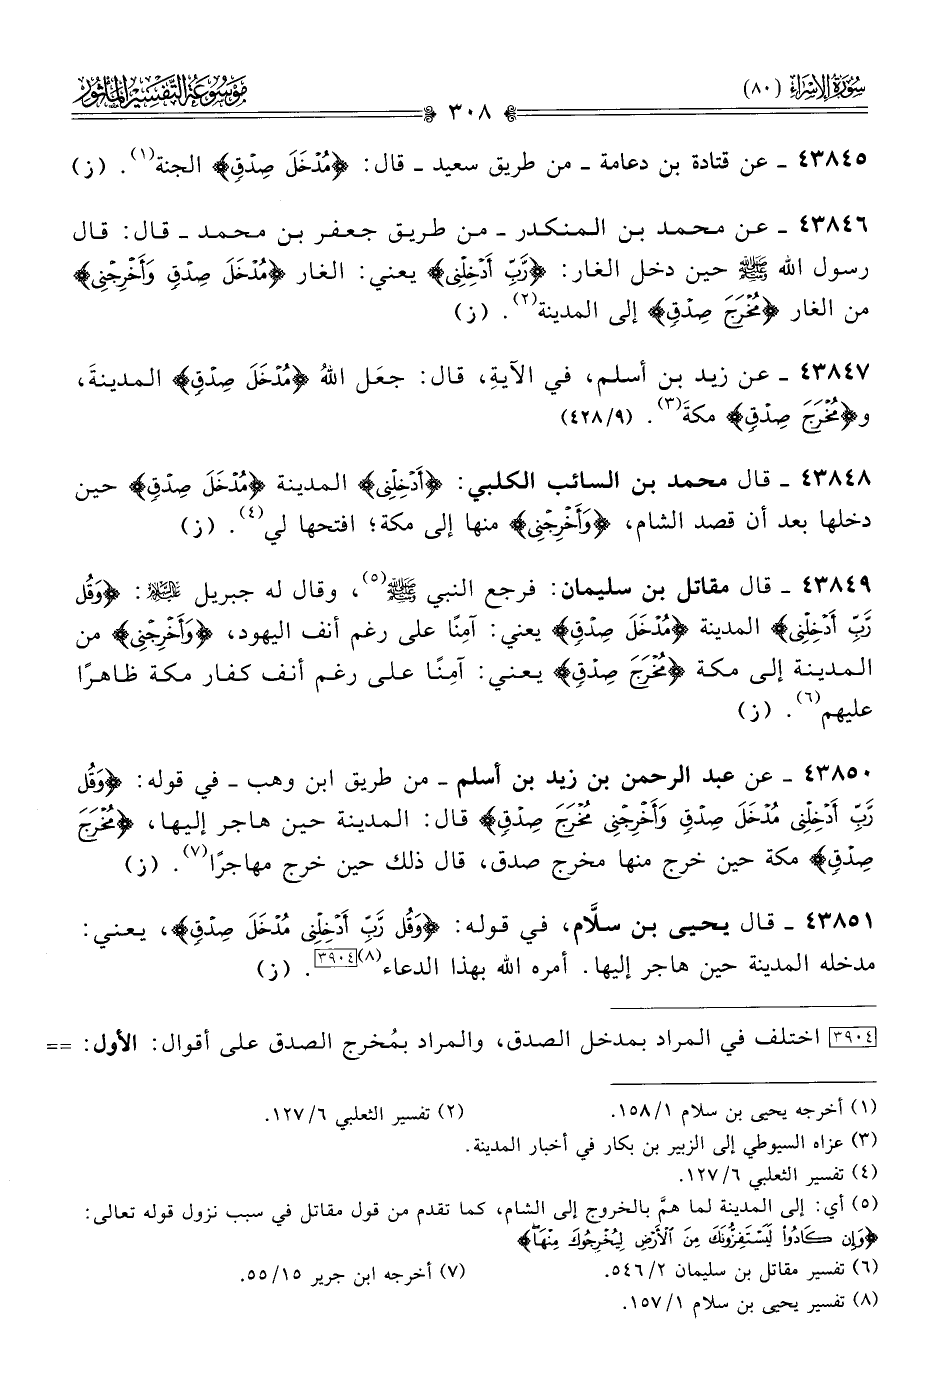 سُورَةُ الإِسْرَاءِ (٨٠)
٣٠٨
مَوْسُوعَة التَّفْسِيْر المَأْثُور
٤٣٨٤٥ ـ عن قتادة بن دعامة ـ من طريق سعيد ـ قال: ﴿مُدْخَلَ صِدْقٍ﴾ الجنة(١). (ز)
٤٣٨٤٦ ـ عن محمد بن المنكدر ـ من طريق جعفر بن محمد ـ قال: قال
رسول الله ﷺ حين دخل الغار: ﴿رَّبِّ أَدْخِلْنِي﴾ يعني: الغار ﴿مُدْخَلَ صِدْقٍ وَأَخْرِجْنِي﴾
من الغار ﴿مُخْرَجَ صِدْقٍ﴾ إلى المدينة(٢). (ز)
٤٣٨٤٧ ـ عن زيد بن أسلم، في الآيةِ، قال: جعَل اللهُ ﴿مُدْخَلَ صِدْقٍ﴾ المدينةَ،
و﴿مُخْرَجَ صِدْقٍ﴾ مكةَ(٣). (٩/ ٤٢٨)
٤٣٨٤٨ ـ قال محمد بن السائب الكلبي: ﴿أَدْخِلْنِي﴾ المدينة ﴿مُدْخَلَ صِدْقٍ﴾ حين
دخلها بعد أن قصد الشام، ﴿وَأَخْرِجْنِي﴾ منها إلى مكة؛ افتحها لي(٤). (ز)
٤٣٨٤٩ ـ قال مقاتل بن سليمان: فرجع النبي ﷺ(٥)، وقال له جبريل عليه السلام: ﴿وَقُل
رَّبِّ أَدْخِلْنِي﴾ المدينة ﴿مُدْخَلَ صِدْقٍ﴾ يعني: آمِنًا على رغم أنف اليهود، ﴿وَأَخْرِجْنِي﴾ من
المدينة إلى مكة ﴿مُخْرَجَ صِدْقٍ﴾ يعني: آمِنًا على رغم أنف كفار مكة ظاهرًا
عليهم(٦). (ز)
٤٣٨٥٠ ـ عن عبد الرحمن بن زيد بن أسلم ـ من طريق ابن وهب ـ في قوله: ﴿وَقُل
رَّبِّ أَدْخِلْنِي مُدْخَلَ صِدْقٍ وَأَخْرِجْنِي مُخْرَجَ صِدْقٍ﴾ قال: المدينة حين هاجر إليها، ﴿مُخْرَجَ
صِدْقٍ﴾ مكة حين خرج منها مخرج صدق، قال ذلك حين خرج مهاجرًا(٧). (ز)
٤٣٨٥١ ـ قال يحيى بن سلَّام، في قوله: ﴿وَقُل رَّبِّ أَدْخِلْنِي مُدْخَلَ صِدْقٍ﴾، يعني:
مدخله المدينة حين هاجر إليها. أمره الله بهذا الدعاء(٨)[٣٩٠٤]. (ز)
[٣٩٠٤] اختلف في المراد بمدخل الصدق، والمراد بمُخرج الصدق على أقوال: الأول: ==
(١) أخرجه يحيى بن سلام ١/ ١٥٨. (٢) تفسير الثعلبي ٦/ ١٢٧.
(٣) عزاه السيوطي إلى الزبير بن بكار في أخبار المدينة.
(٤) تفسير الثعلبي ٦/ ١٢٧.
(٥) أي: إلى المدينة لما همَّ بالخروج إلى الشام، كما تقدم من قول مقاتل في سبب نزول قوله تعالى:
﴿وَإِن كَادُواْ لَيَسْتَفِزُّونَكَ مِنَ الْأَرْضِ لِيُخْرِجُوكَ مِنْهَا﴾
(٦) تفسير مقاتل بن سليمان ٢/ ٥٤٦. (٧) أخرجه ابن جرير ١٥/ ٥٥.
(٨) تفسير يحيى بن سلام ١/ ١٥٧.